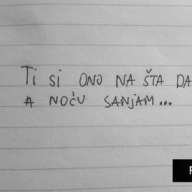 Ti si ono na šta da
a noću sanjam...